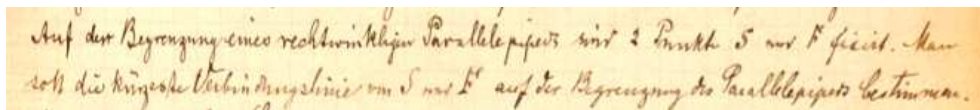 Auf der Begrenzung eines rechtwinkligen Parallelepipeds sind 2 Punkte S und F fixirt. Man
soll die kürzeste Verbindungslinie von S und F auf der Begrenzung des Parallelepipeds bestimmen.